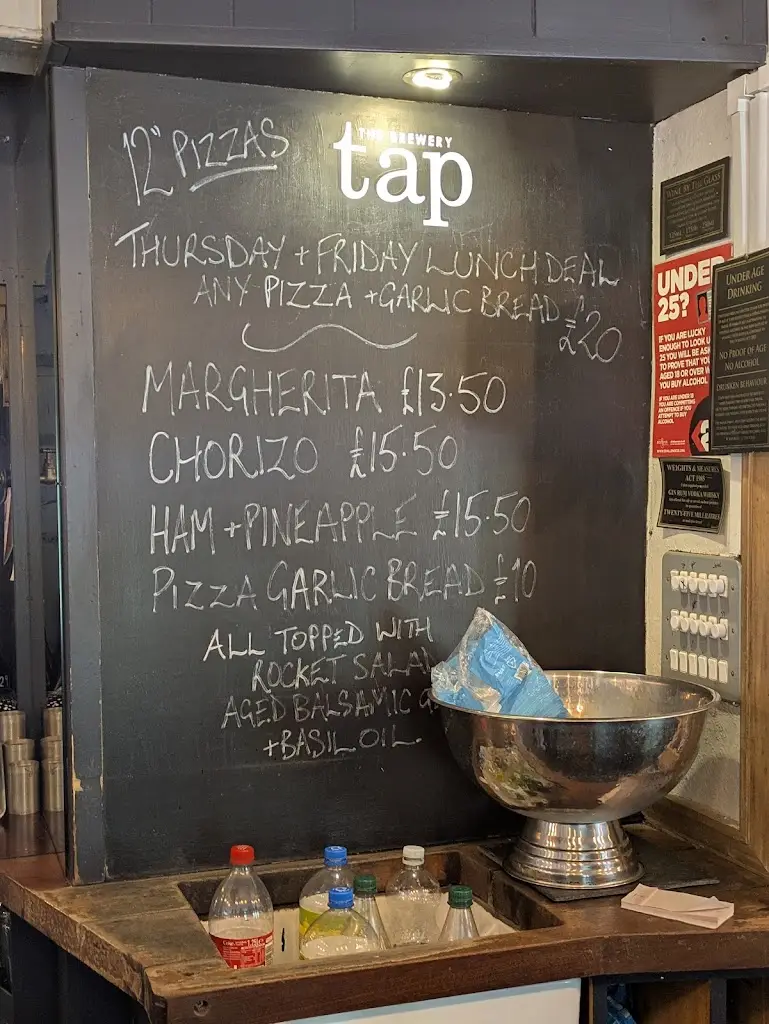 12" PIZZAS
THE BREWERY
tap
THURSDAY + FRIDAY LUNCH DEAL
ANY PIZZA + GARLIC BREAD £20
MARGHERITA £13.50
CHORIZO £15.50
HAM + PINEAPPLE £15.50
PIZZA GARLIC BREAD £10
ALL TOPPED WITH
ROCKET SALAD
AGED BALSAMIC G
+ BASIL OIL.
WINE BY THE GLASS
UNDER
25?
IF YOU ARE LUCKY
ENOUGH TO LOOK U
25 YOU WILL BE ASK
TO PROVE THAT YOU
AGED 18 OR OVER W
YOU BUY ALCOHOL
IF YOU ARE UNDER 18
YOU ARE COMMITTING
AN OFFENCE IF YOU
ATTEMPT TO BUY
ALCOHOL
UNDER AGE
DRINKING
NO PROOF OF AGE
NO ALCOHOL
DRUNKEN BEHAVIOUR
WEIGHTS & MEASURES
ACT 1985
GIN RUM VODKA WHISKY
TWENTY-FIVE MILLILITRES